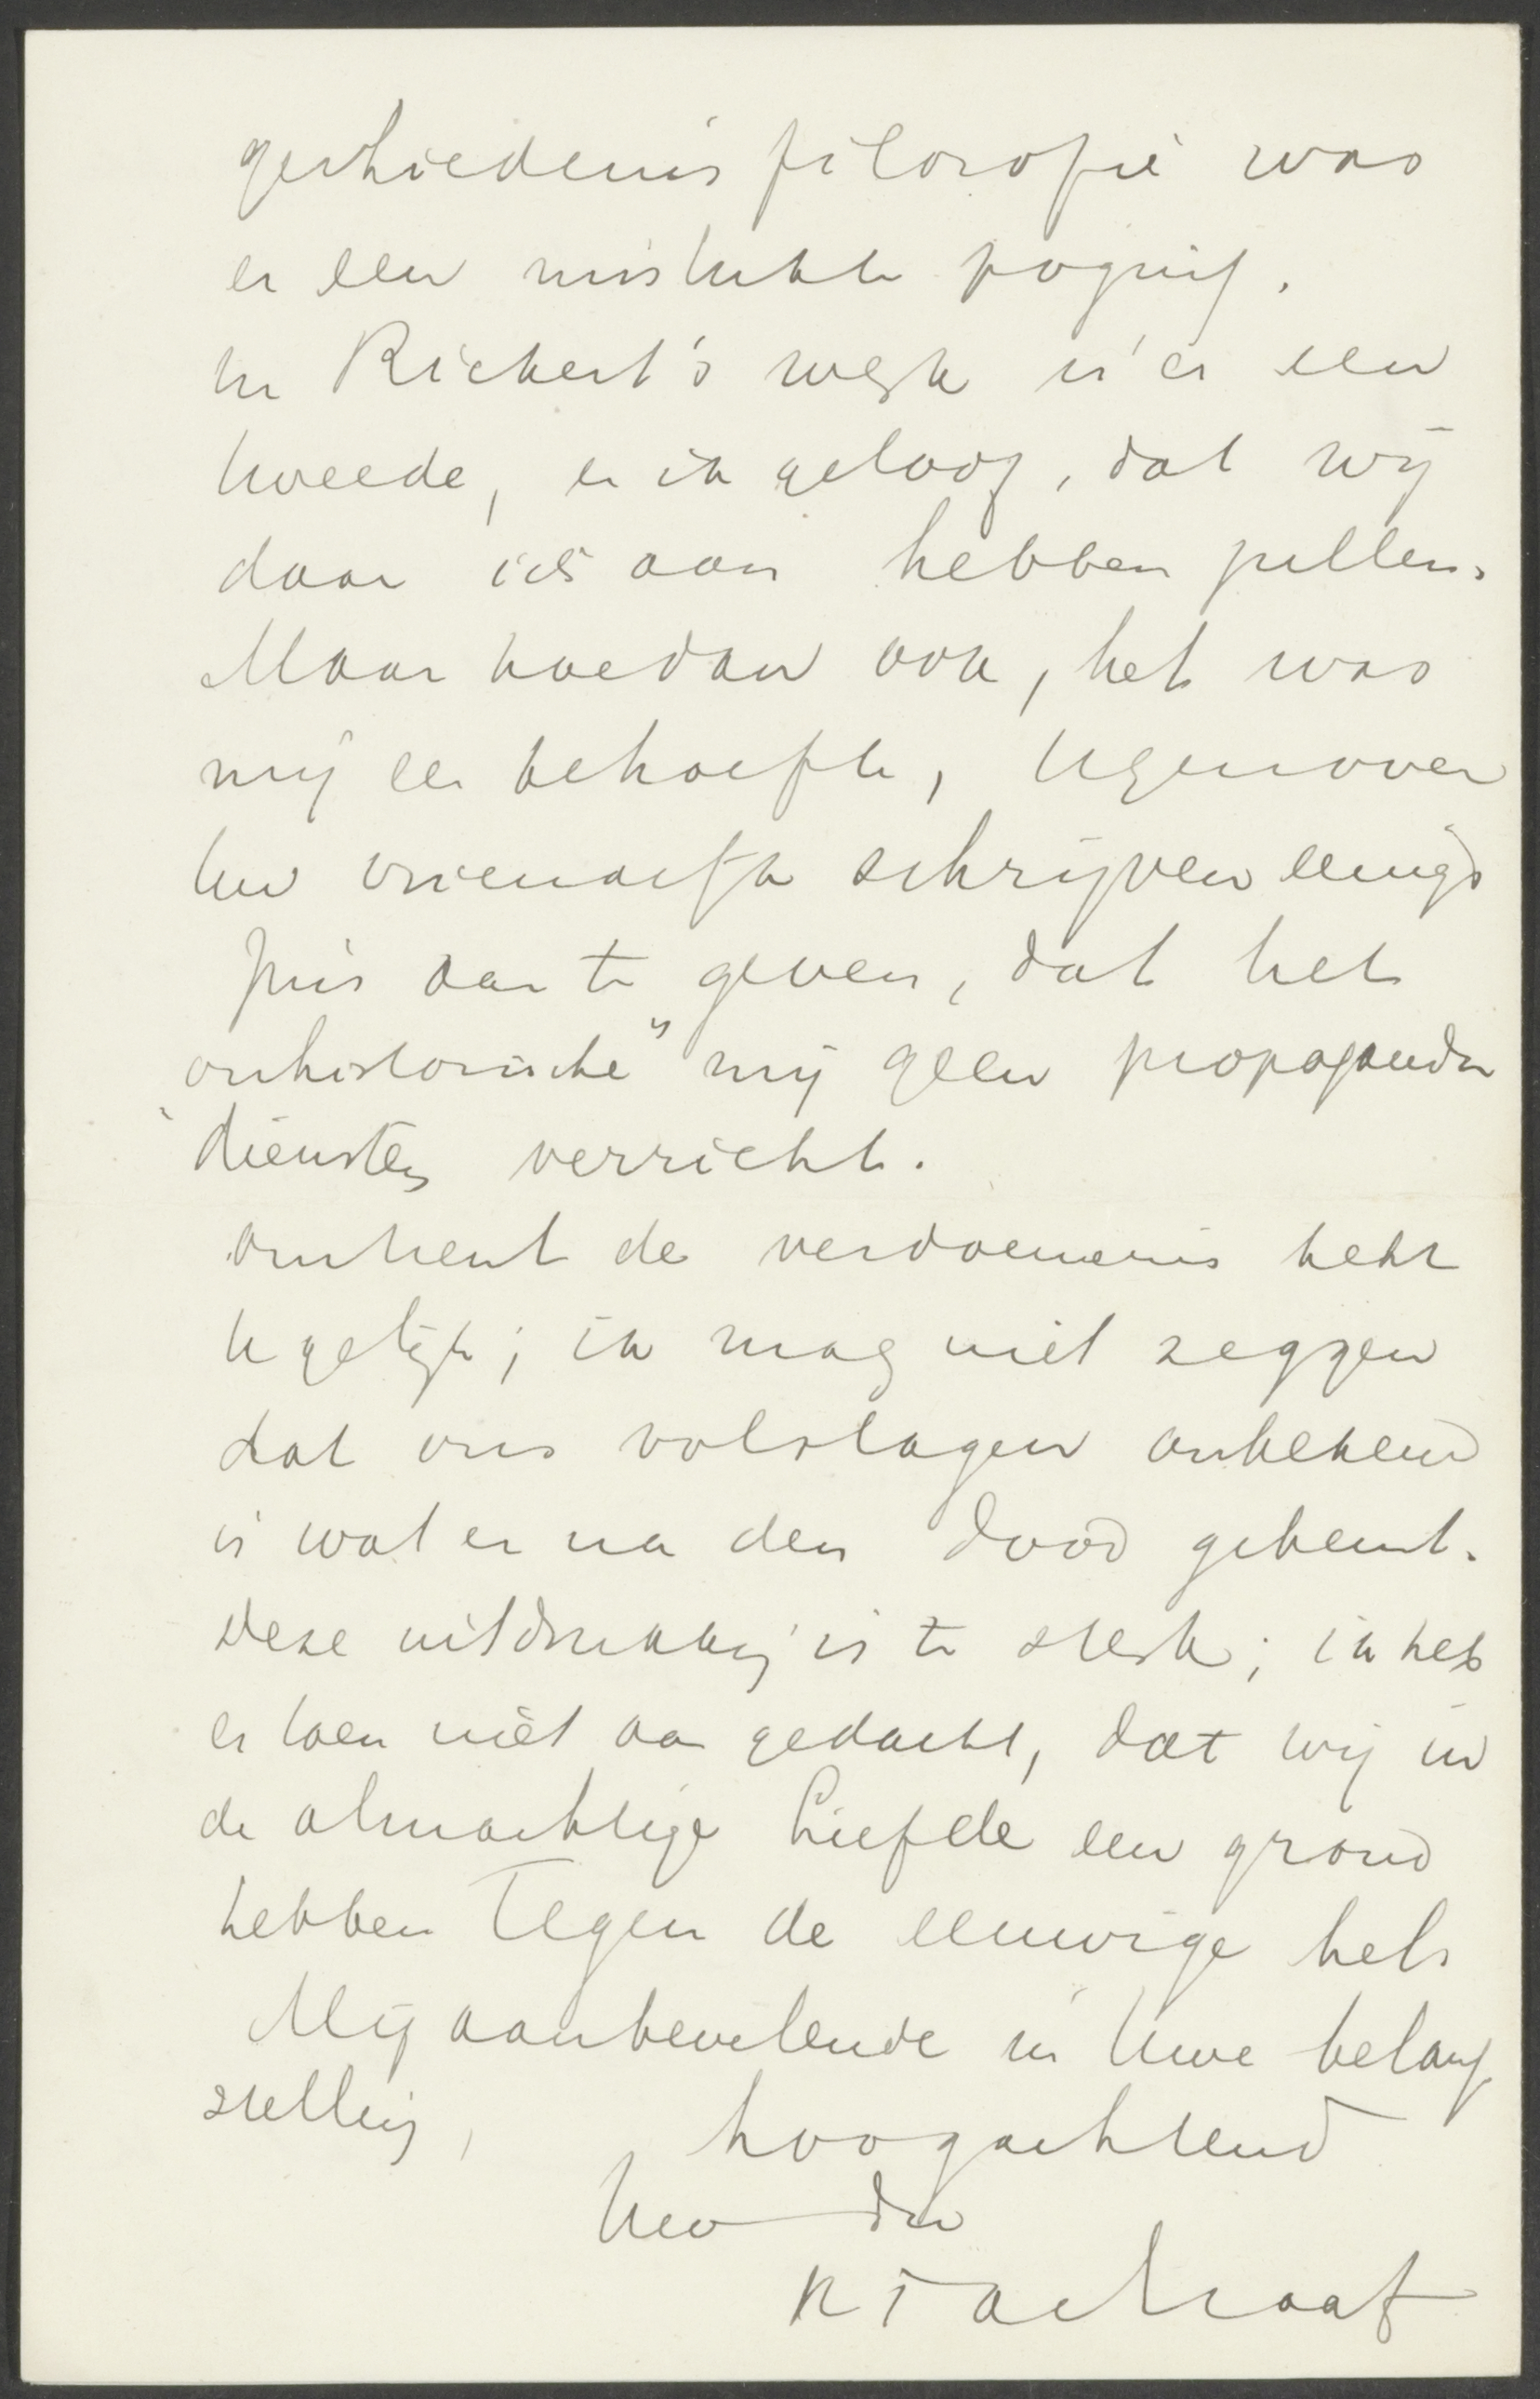 geschiedenisfilosofie was
er een mislukte poging.
In Rickert's werk is er een
tweede, en ik geloof, dat wij
daar iets aan hebben zullen.
Maar hoe dan ook, het was
mij een behoefte, tegenover
Uw vriendelijk schrijven eenigs
zins aan te geven, dat het
"onhistorische" mij geen propaganda
diensten verricht.
Omtrent de verdoemenis hebt
U gelijk; ik mag niet zeggen
dat ons volslagen onbekend
is wat er na den dood gebeurt.
Deze uitdrukking is te sterk; ik heb
er toen niet aan gedacht, dat wij in
de almachtige Liefde een grond
hebben tegen de eeuwige hel.
Mij aanbevelende in Uwe belang
stelling,
hoogachtend
Uw dw